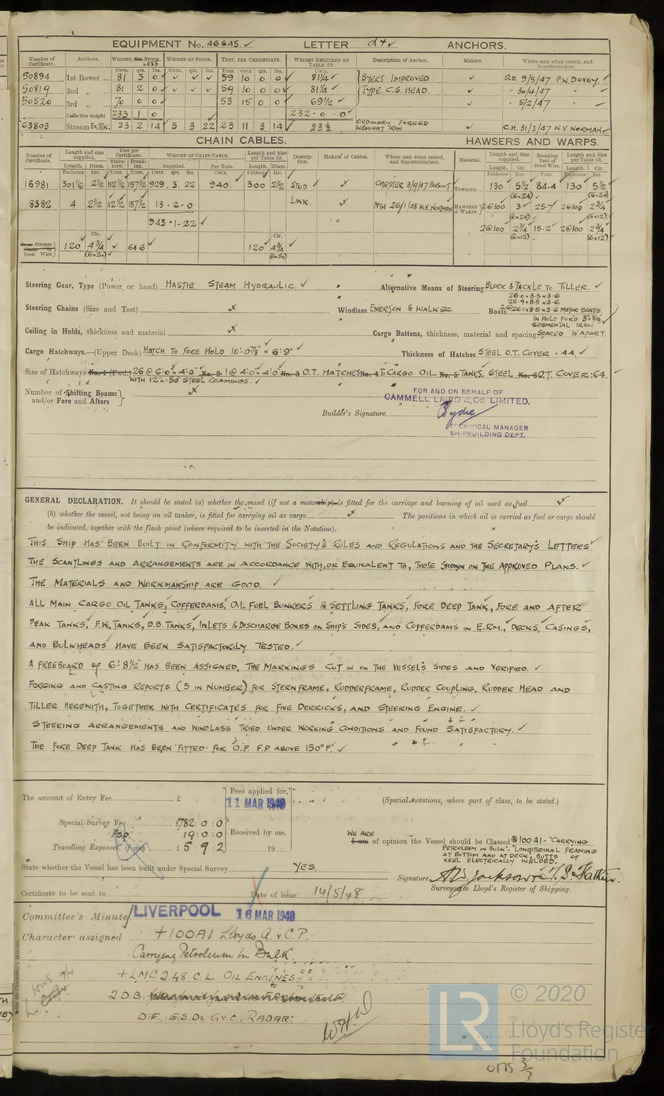 EQUIPMENT No. 46645 LETTER d+ ANCHORS.
Number of Certificate. Anchors. WEIGHT, STOCK. WEIGHT OF STOCK. TEST, PER CERTIFICATE. WEIGHT REQUIRED BY TABLE 53 Description of Anchor. Makers. Where and when tested, and Superintendent.
Cwts. qrs. lbs. Cwts. qrs. lbs. Tons. cwts. qrs. lbs. Cwts.
50894 1st Bower 81 3 0 59 10 0 0 81¼ BYERS IMPROVED SLD. 9/5/47 F.W. DOVEY.
50819 2nd 81 2 0 59 10 0 0 81¼ TYPE C.S. HEAD. 30/4/47
50520 3rd 70 0 0 53 15 0 0 69½ 5/2/47
Collective weight 233 1 0 232-0-0
63803 Stream 23 2 14 5 3 22 23 11 3 14 23½ ORDINARY FORGED WROUGHT IRON C.H. 31/3/47 N.V. NORMAN
CHAIN CABLES. HAWSERS AND WARPS.
Number of Certificate. Length and size supplied. Test per Certificate. WEIGHT OF CHAIN CABLE. Length and Size per Table 53. Description. Makers of Cables. Where and when tested, and Superintendent. Material. Length and Size supplied. Breaking Test of Steel Wire. Length and Size per Table 53.
Length. Diam. Supplied. Per Rule. Length. Diam. Length. Cir. Length. Cir.
Fathoms Ins. Tons. Tons. Cwts. qrs. lbs. Cwts. Fathoms Ins. Fathoms Ins. Tons. Fathoms Ins.
16981 301½ 2½ 112½ 157½ 929. 3. 22 940. 300 2½ STUD CHESTER TOWLINE 130 5½ 84.4 130 5½
(6×24) (6×24)
8382 4 2½ 112½ 157½ 13-2-0 LINK. NTH 26/1/48 N.V. NORMAN HAWSERS & WARPS 2@100 3 25.7 2@100 2¾
943-1-22 (6×24) (6×12)
2@100 2¾ 15.2 2@100 2¾
(6×12) (6×12)
Stream Steel Wire 120 4¾ 64.6 120 4¾
(6×24)
Steering Gear, Type (Power or hand) HASTIE STEAM HYDRAULIC. Alternative Means of Steering BLOCK & TACKLE TO TILLER.
Steering Chains (Size and Test) x Windlass EMERSON & WALKER. Boats MOTOR BOATS.
Ceiling in Holds, thickness and material x Cargo Battens, thickness, material and spacing IN HOLD FOR'D SEGMENTAL IRON SPACED APART.
Cargo Hatchways.—(Upper Deck) HATCH TO FORE HOLD 10'-0⅞" × 6'-9" Thickness of Hatches STEEL O.T. COVER .44.
Size of Hatchways No. 1 (Fwd.) 26 @ 6'-0" × 4'-0" No. 2 1 @ 4'-0" × 4'-0" No. 3 O.T. HATCHES No. 4 TO CARGO OIL No. 5 TANKS. STEEL No. 6 O.T. COVER .64.
WITH 12" × .50" STEEL COAMINGS.
Number of Shifting Beams and/or Fore and Afters } x
FOR AND ON BEHALF OF
CAMMELL LAIRD & CO. LIMITED.
Builder's Signature
TECHNICAL MANAGER
SHIPBUILDING DEPT.
GENERAL DECLARATION. It should be stated (a) whether the vessel (if not a motorship) is fitted for the carriage and burning of oil used as fuel
(b) whether the vessel, not being an oil tanker, is fitted for carrying oil as cargo x The positions in which oil is carried as fuel or cargo should
be indicated, together with the flash point (where required to be inserted in the Notation).
THIS SHIP HAS BEEN BUILT IN CONFORMITY WITH THE SOCIETY'S RULES AND REGULATIONS AND THE SECRETARY'S LETTERS
THE SCANTLINGS AND ARRANGEMENTS ARE IN ACCORDANCE WITH, OR EQUIVALENT TO, THOSE SHOWN ON THE APPROVED PLANS.
THE MATERIALS AND WORKMANSHIP ARE GOOD.
ALL MAIN CARGO OIL TANKS, COFFERDAMS, OIL FUEL BUNKERS & SETTLING TANKS, FORE DEEP TANK, FORE AND AFTER
PEAK TANKS, F.W. TANKS, D.B. TANKS, INLETS & DISCHARGE BOXES ON SHIP'S SIDES, AND COFFERDAMS IN E.RM., DECKS, CASINGS,
AND BULKHEADS HAVE BEEN SATISFACTORILY TESTED.
A FREEBOARD OF 6'-8½" HAS BEEN ASSIGNED, THE MARKINGS CUT IN ON THE VESSEL'S SIDES AND VERIFIED.
FORGING AND CASTING REPORTS (5 IN NUMBER) FOR STERNFRAME, RUDDERFRAME, RUDDER COUPLING, RUDDER HEAD AND
TILLER HEREWITH, TOGETHER WITH CERTIFICATES FOR FIVE DERRICKS, AND STEERING ENGINE.
STEERING ARRANGEMENTS AND WINDLASS TRIED UNDER WORKING CONDITIONS AND FOUND SATISFACTORY.
THE FORE DEEP TANK HAS BEEN FITTED FOR O.F. F.P. ABOVE 150°F.
The amount of Entry Fee £ : : Fees applied for,
11 MAR 1948 (Special notations, where part of class, to be stated.)
Special Survey Fee £782 : 0 : 0
FBD 19 : 0 : 0 Received by me,
Travelling Expenses £ 5 : 9 : 2 19
WE ARE of opinion the Vessel should be Classed ✠100A1-"CARRYING PETROLEUM IN BULK". "LONGITUDINAL FRAMING AT BOTTOM AND AT DECK; BUTTS OF KEEL ELECTRICALLY WELDED.
State whether the Vessel has been built under Special Survey YES.
Signature
Surveyor to Lloyd's Register of Shipping.
Certificate to be sent to Date of issue 14/5/48
Committee's Minute LIVERPOOL 16 MAR 1948
Character assigned +100A1 Lloyds A. & C.P.
Carrying Petroleum in Bulk
+LMC 2.48 C.L. OIL ENGINES
2 D.B.
D.F. E.S.D. Gy.C. RADAR
LR © 2020
Lloyd's Register
Foundation